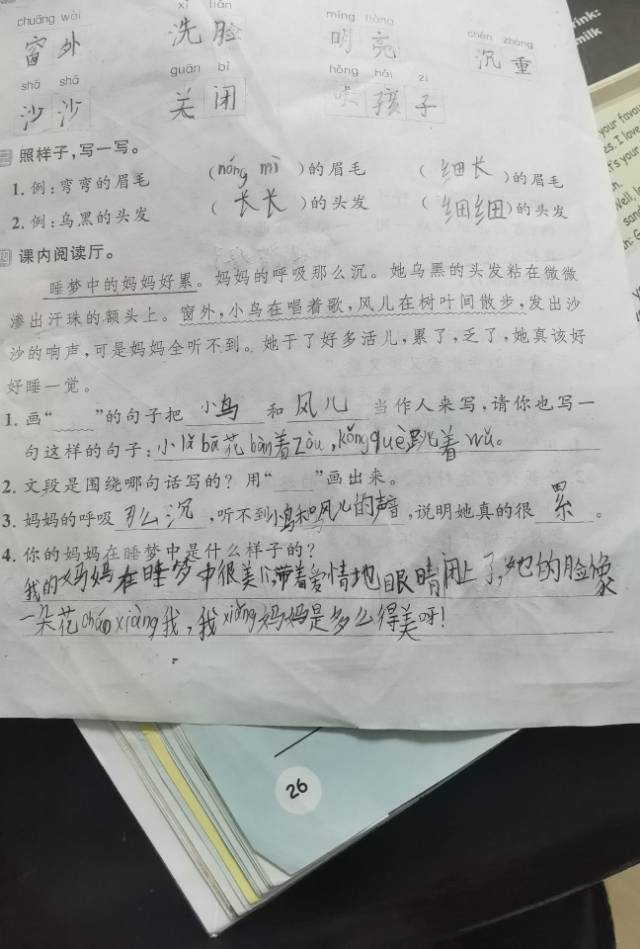 xǐ liǎn
chuāng wài míng liàng chén zhòng
窗外 洗脸 明亮 沉重
shā shā guān bì hōng hái zi
沙沙 关闭 孩子
三 照样子,写一写。
1. 例:弯弯的眉毛 (nóng mì)的眉毛 (细长)的眉毛
2. 例:乌黑的头发 (长长)的头发 (细细)的头发
四 课内阅读厅。
睡梦中的妈妈好累。妈妈的呼吸那么沉。她乌黑的头发粘在微微
渗出汗珠的额头上。窗外,小鸟在唱着歌,风儿在树叶间散步,发出沙
沙的响声,可是妈妈全听不到。她干了好多活儿,累了,乏了,她真该好
好睡一觉。
1. 画“ ”的句子把 小鸟 和 风儿 当作人来写,请你也写一
句这样的句子:小lǎ bā花bàn着zòu,kǒng què跳着wǔ。
2. 文段是围绕哪句话写的?用“ ”画出来。
3. 妈妈的呼吸 那么沉 ,听不到小鸟和风儿的声音,说明她真的很 累 。
4. 你的妈妈在睡梦中是什么样子的?
我的妈妈在睡梦中很美,带着爱情地眼睛闭上了,她的脸像
一朵花cháo xiàng我,我xiǎng妈妈是多么得美呀!
26
ink:
milk
your favou
es. I love
Well, I